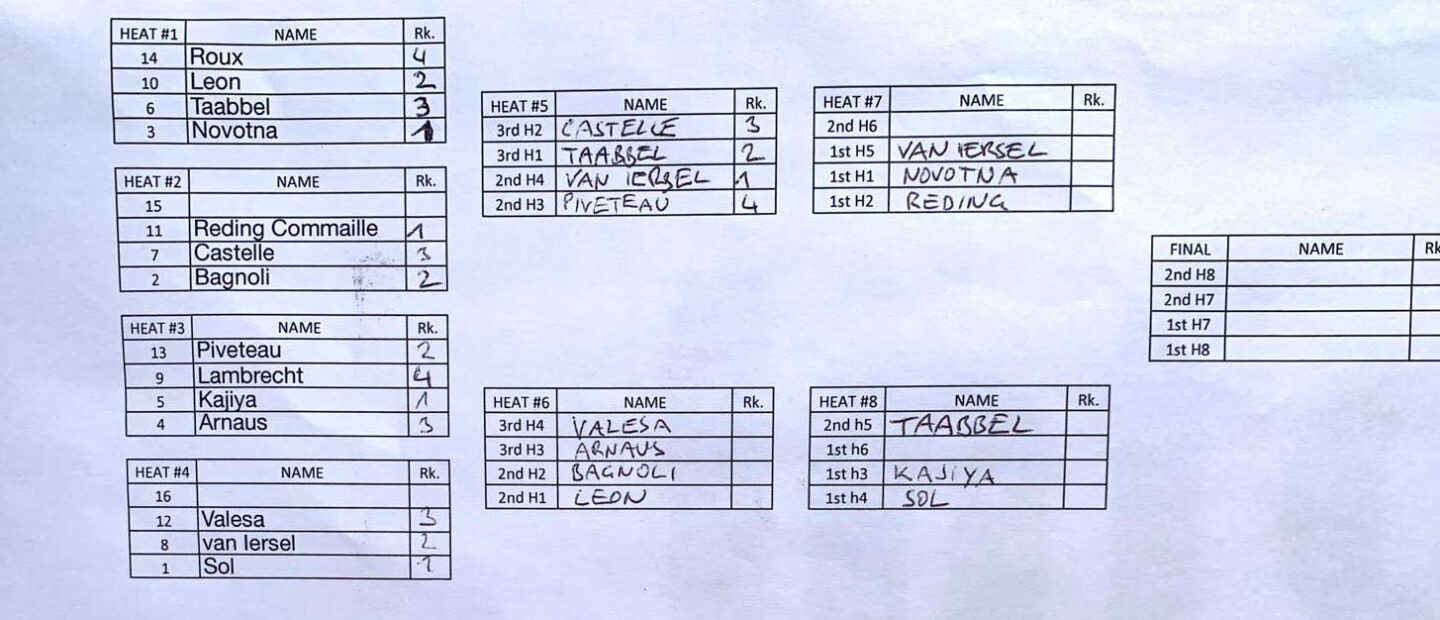 HEAT #1 NAME Rk.
14 Roux 4
10 Leon 2
6 Taabbel 3
3 Novotna 1
HEAT #2 NAME Rk.
15
11 Reding Commaille 1
7 Castelle 3
2 Bagnoli 2
HEAT #3 NAME Rk.
13 Piveteau 2
9 Lambrecht 4
5 Kajiya 1
4 Arnaus 3
HEAT #4 NAME Rk.
16
12 Valesa 3
8 van Iersel 2
1 Sol 1
HEAT #5 NAME Rk.
3rd H2 CASTELLE 3
3rd H1 TAABBEL 2
2nd H4 VAN IERSEL 1
2nd H3 PIVETEAU 4
HEAT #6 NAME Rk.
3rd H4 VALESA
3rd H3 ARNAUS
2nd H2 BAGNOLI
2nd H1 LEON
HEAT #7 NAME Rk.
2nd H6
1st H5 VAN IERSEL
1st H1 NOVOTNA
1st H2 REDING
HEAT #8 NAME Rk.
2nd h5 TAABBEL
1st h6
1st h3 KAJIYA
1st h4 SOL
FINAL NAME Rk
2nd H8
2nd H7
1st H7
1st H8